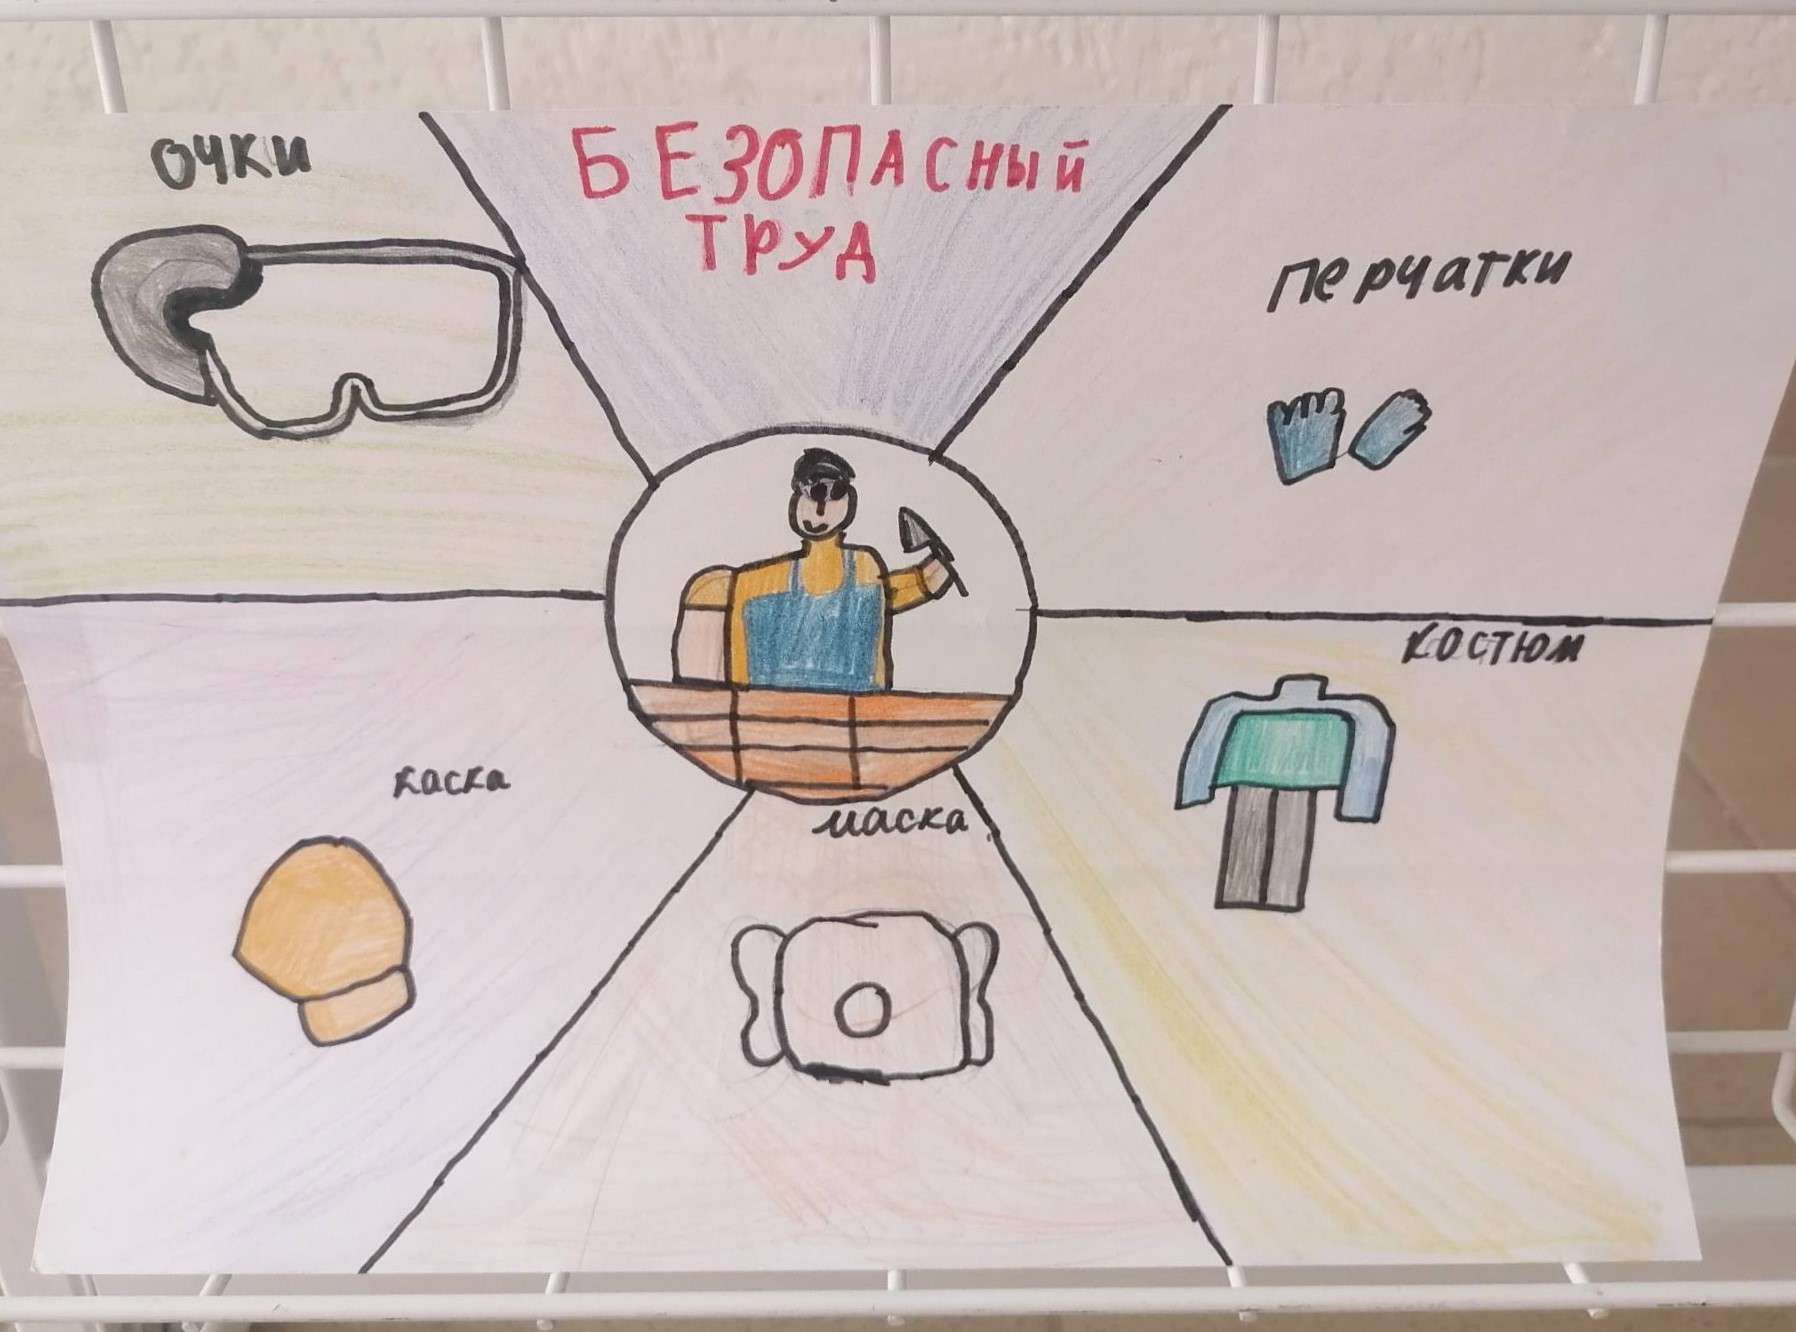 ОЧКИ
БЕЗОПАСНЫЙ
ТРУД
ПЕРЧАТКИ
КОСТЮМ
каска
маска